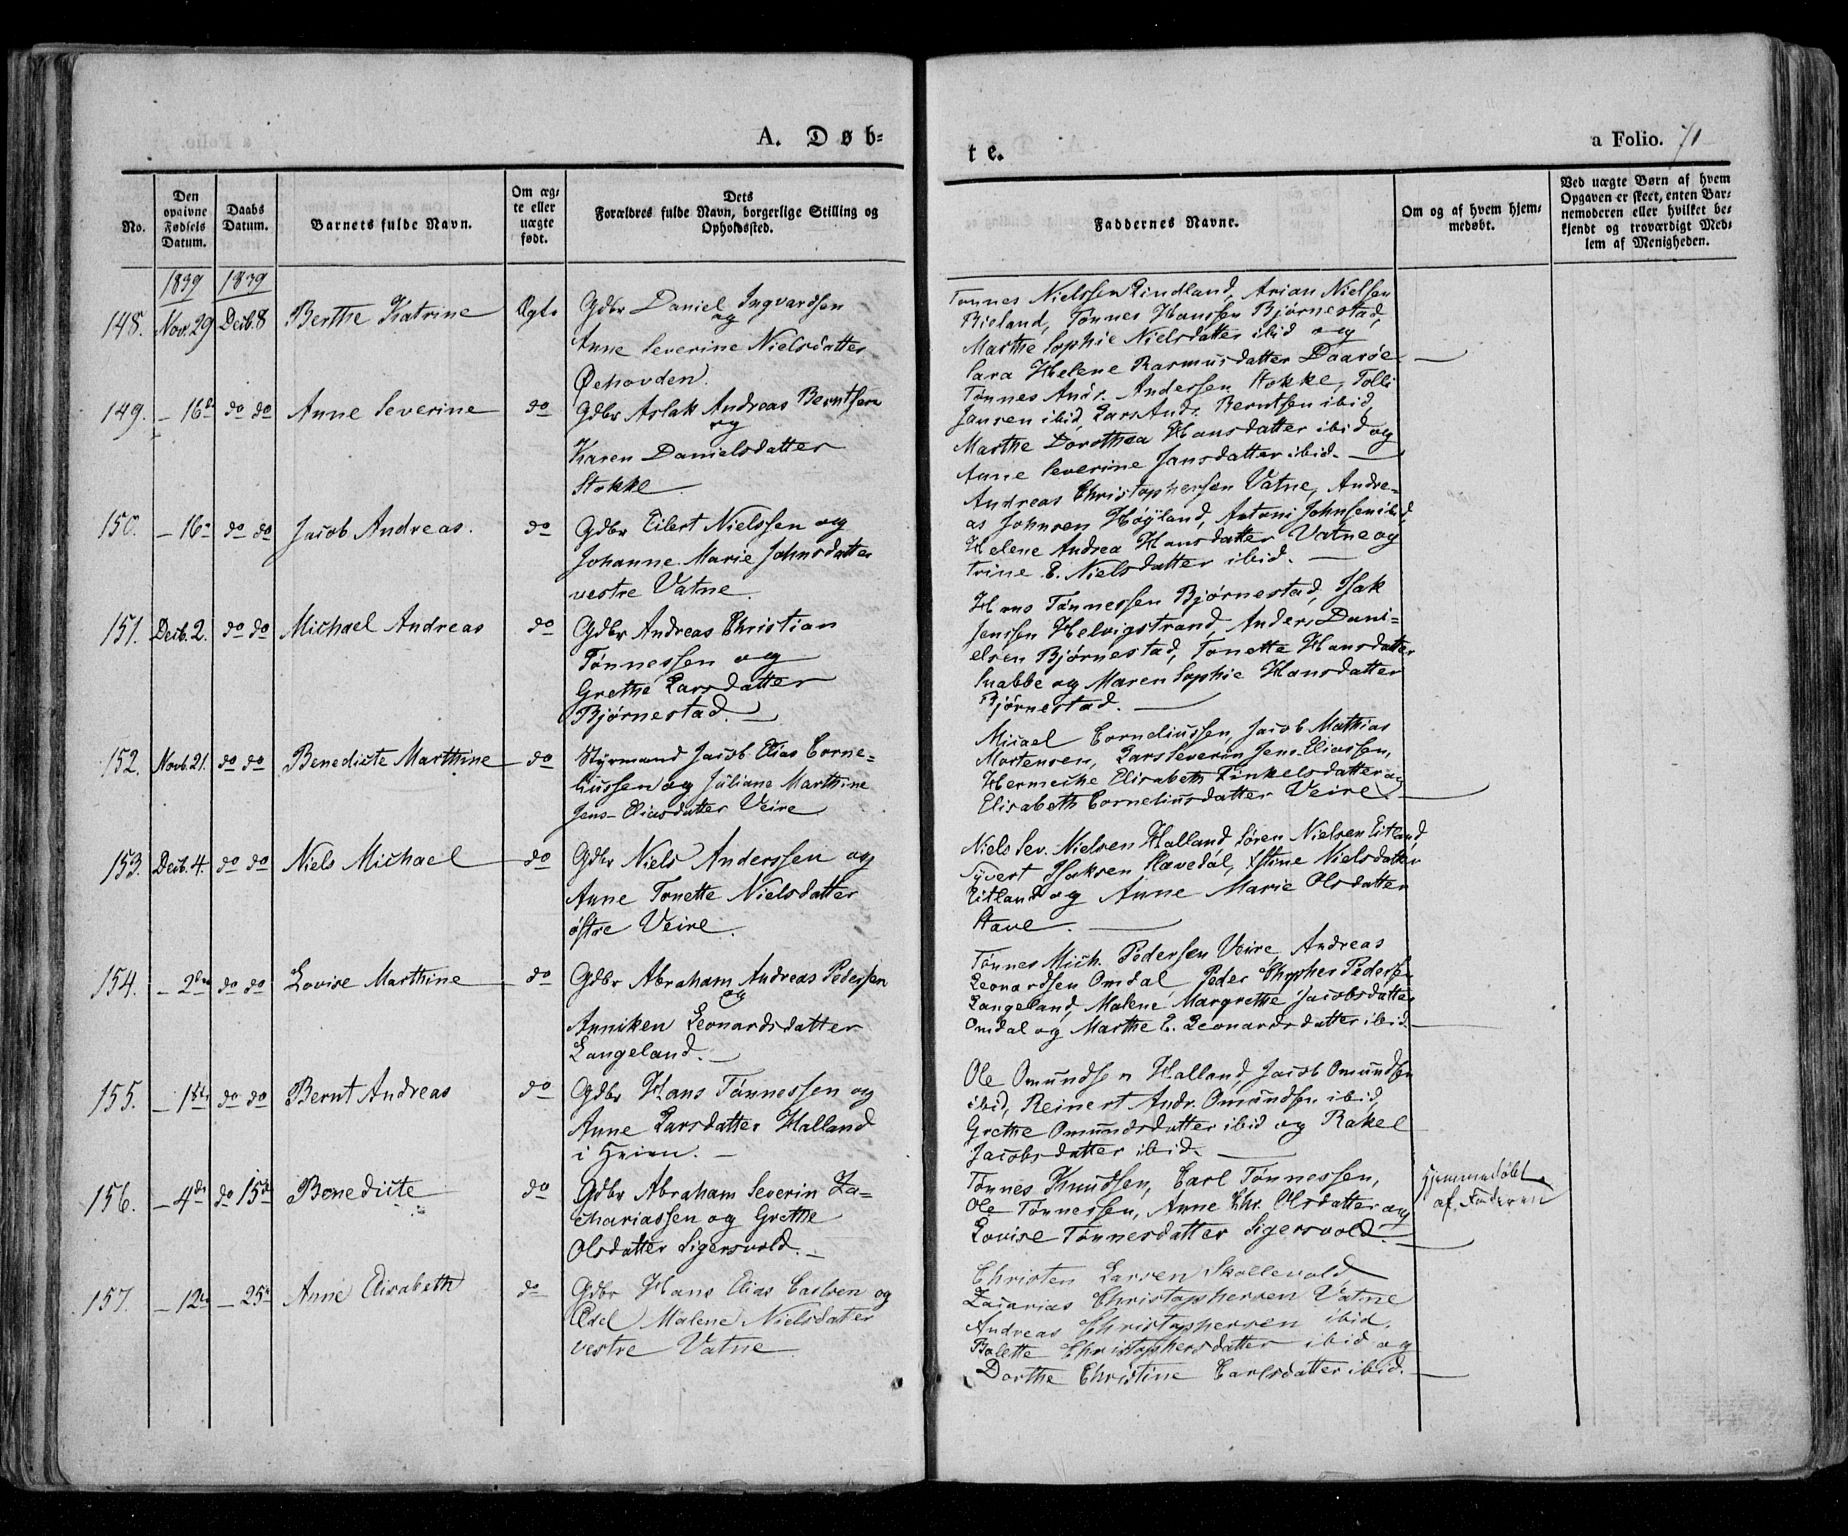 A. Døb-
No.
Den opgivne Fødsels Datum.
Daabs Datum.
Barnets fulde Navn.
Om ægte eller uægte født.
Dets Forældres fulde Navn, borgerlige Stilling og Opholdssted.
1839 1839
148. Nov. 29 Decb. 8 Berthe Katrine Ægte Gdbr Daniel Ingvardsen
og
Anne Severine Nielsdatter
Øehovden.
149. – 16de do do Anne Severine do Gdbr Aslak Andreas Berntsen
og
Karen Danielsdatter
Stokke.
150. – 16de do do Jacob Andreas. do Gdbr Eilert Nielssen og
Johanne Marie Johnsdatter
vestre Vatne.
151. Decb. 2. do do Michael Andreas do Gdbr Andreas Christian
Tønnessen og
Grethe Larsdatter
Bjørnestad. –
152. Novb. 21. do do Benedicte Marthine do Styrmand Jacob Elias Corne-
liussen og Juliane Marthine
Jens-Eliasdatter Veire
153. Decb. 4. do do Niels Michael do Gdbr Niels Anderssen og
Anne Tonette Nielsdatter
østre Veire.
154. – 2den do do Lovise Marthine do Gdbr Abraham Andreas Pedersen
og
Anniken Leonardsdatter
Langeland. –
155. – 1ste do do Bernt Andreas do Gdbr Hans Tønnessen og
Anne Larsdatter Halland
i Heien. –
156. – 4de do 15de Benedicte do Gdbr Abraham Severin Za-
chariassen og Grethe
Olsdatter Sigersvold. –
157. – 12te – 25de Anne Elisabeth do Gdbr Hans Elias Carlsen og
Edel Malene Nielsdatter
vestre Vatne.
te.
a Folio. 71
Faddernes Navne.
Om og af hvem hjemmedøbt.
Ved uægte Børn af hvem Opgaven er skeet, enten Barnemoderen eller hvilket bekjendt og troværdigt Medlem af Menigheden.
Tønnes Nielssen Rindland, Arian Nielsen
Bieland, Tønnes Hanssen Bjørnestad,
Marthe Sophie Nielsdatter ibid og
Sara Helene Rasmusdatter Daarøe –
Tønnes Andr. Andersen Stokke, Tolli
Jansen ibid, Lars Andr. Berntsen ibid,
Marthe Dorothea Hansdatter ibid og
Anne Severine Jansdatter ibid. –
Andreas Christophersen Vatne, Andre-
as Johnsen Høyland, Antoni Johnsen ibid,
Helene Andrea Hansdatter Vatne og
Trine E. Nielsdatter ibid. –
Hans Tønnessen Bjørnestad, Isak
Jenssen Helvigstrand, Anders Dani-
elsen Bjørnestad, Tonette Hansdatter
Snabbe og Maren Sophie Hansdatter
Bjørnestad. –
Micael Corneliussen, Jacob Mathias
Mortensen, Lars Severin Jens-Eliassen,
Hermeche Elisabeth Finkelsdatter og
Elisabeth Corneliusdatter Veire. –
Niels Sev. Nielsen Halland, Søren Nielsen Eitland,
Syvert Isaksen Stavedal, Stine Nielsdatter
Eitland og Anne Marie Olsdatter
Stave. –
Tønnes Mich. Pedersen Veire, Andreas
Leonardsen Omdal, Peder Chrpher Pedersen
Langeland, Malene Margrethe Jacobsdatter
Omdal og Marthe E. Leonardsdatter ibid. –
Ole Omundsen Halland, Jacob Omundsen
ibid, Reinert Andr. Omundsen ibid,
Grethe Omundsdatter ibid og Rakel
Jacobsdatter ibid. –
Tønnes Knudsen, Carl Tønnessen,
Ole Tønnessen, Anne Chr. Olsdatter og
Lovise Tønnesdatter Sigersvold. –
Hjemmedøbt
af Faderen
Christen Larsen Skollevold
Zacarias Christophersen Vatne
Andreas Christophersen ibid,
Bolette Christophersdatter ibid og
Dorthe Christine Carlsdatter ibid. –